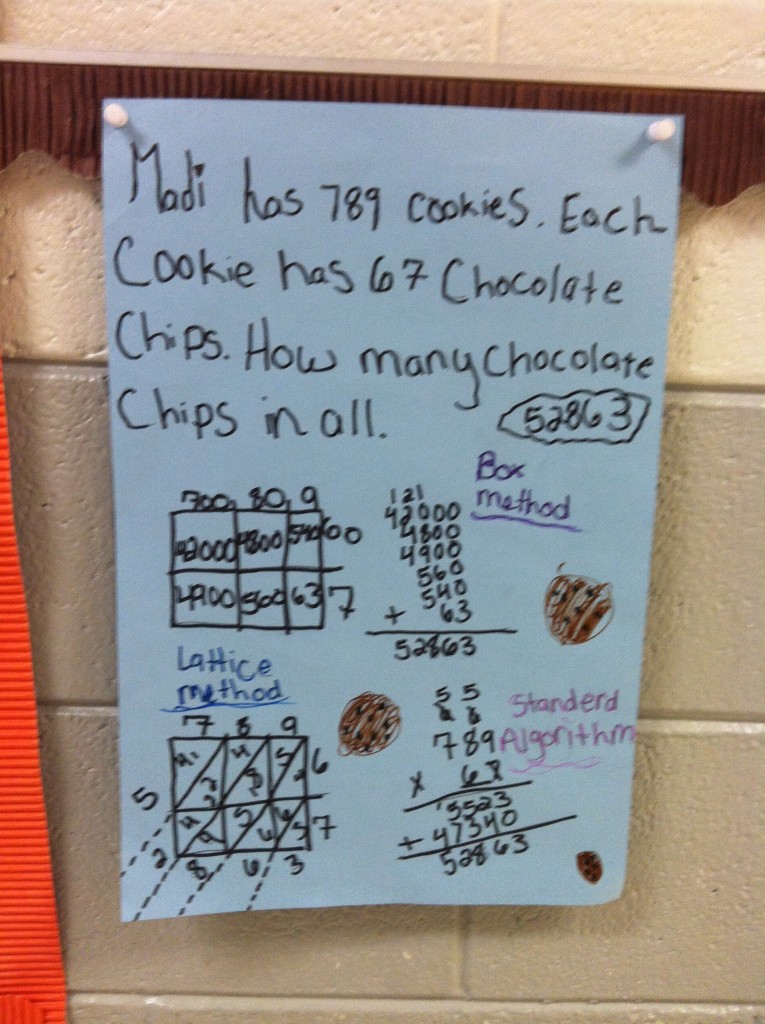 Madi has 789 cookies. Each
Cookie has 67 Chocolate
Chips. How many Chocolate
Chips in all.
52863
Box
method
700 80 9
42000 4800 540 60
4900 560 63 7
121
42000
4800
4900
560
540
+ 63
52863
Lattice
method
7 8 9
6
7
5
2
8 6 3
Standerd
Algorithm
5 5
789
x 67
5523
+ 47340
52863